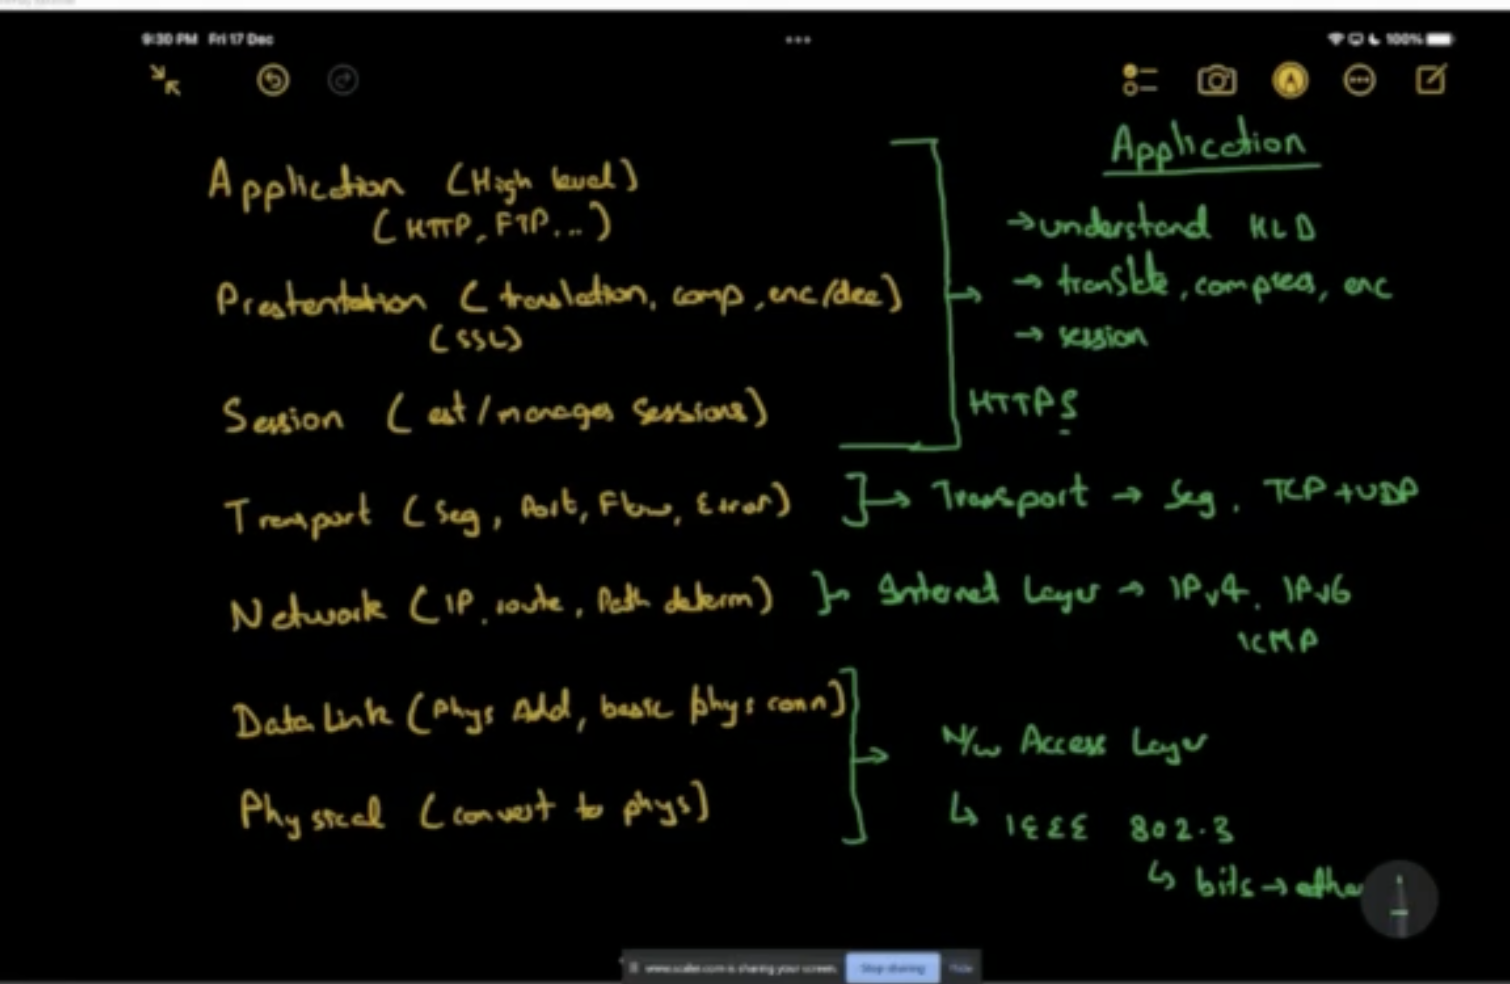 9:30 PM Fri 17 Dec
100%
Application (High level)
(HTTP, FTP...)
Prestentation (translation, comp, enc/dec)
(SSL)
Session (est/manages Sessions)
Transport (Seg, Port, Flow, Error)
Network (IP, route, Path determ)
Data Link (Phys Add, basic phys conn)
Physical (convert to phys)
Application
→ understand HLD
→ translate, compress, enc
→ session
HTTPS
→ Transport → Seg. TCP + UDP
Internet Layer → IPv4, IPv6
ICMP
N/w Access Layer
↳ IEEE 802.3
↳ bits → ether
www.scaler.com is sharing your screen.
Stop sharing
Hide